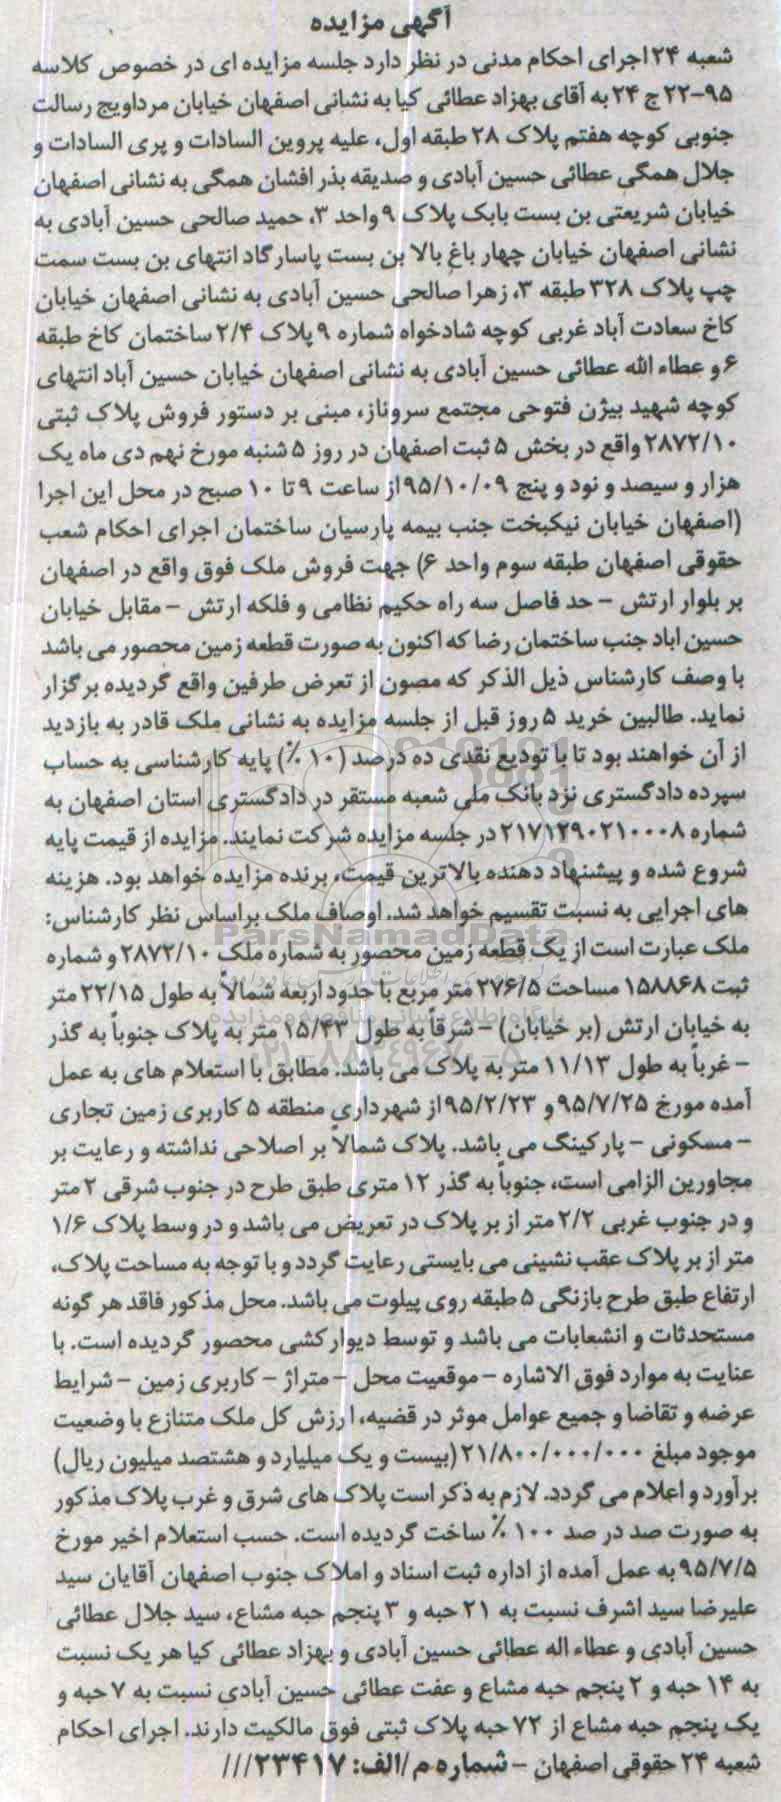 آگهی مزایده
شعبه ۲۴ اجرای احکام مدنی در نظر دارد جلسه مزایده ای در خصوص کلاسه
۲۲-۹۵ ج ۲۴ به آقای بهزاد عطائی کیا به نشانی اصفهان خیابان مرداویج رسالت
جنوبی کوچه هفتم پلاک ۲۸ طبقه اول، علیه پروین السادات و پری السادات و
جلال همگی عطائی حسین آبادی و صدیقه بذر افشان همگی به نشانی اصفهان
خیابان شریعتی بن بست بابک پلاک ۹ واحد ۳، حمید صالحی حسین آبادی به
نشانی اصفهان خیابان چهار باغ بالا بن بست پاسارگاد انتهای بن بست سمت
چپ پلاک ۳۲۸ طبقه ۳، زهرا صالحی حسین آبادی به نشانی اصفهان خیابان
کاخ سعادت آباد غربی کوچه شادخواه شماره ۹ پلاک ۲/۴ ساختمان کاخ طبقه
۶ و عطاء الله عطائی حسین آبادی به نشانی اصفهان خیابان حسین آباد انتهای
کوچه شهید بیژن فتوحی مجتمع سروناز، مبنی بر دستور فروش پلاک ثبتی
۲۸۷۲/۱۰ واقع در بخش ۵ ثبت اصفهان در روز ۵ شنبه مورخ نهم دی ماه یک
هزار و سیصد و نود و پنج ۹۵/۱۰/۰۹ از ساعت ۹ تا ۱۰ صبح در محل این اجرا
(اصفهان خیابان نیکبخت جنب بیمه پارسیان ساختمان اجرای احکام شعب
حقوقی اصفهان طبقه سوم واحد ۶) جهت فروش ملک فوق واقع در اصفهان
بر بلوار ارتش – حد فاصل سه راه حکیم نظامی و فلکه ارتش – مقابل خیابان
حسین اباد جنب ساختمان رضا که اکنون به صورت قطعه زمین محصور می باشد
با وصف کارشناس ذیل الذکر که مصون از تعرض طرفین واقع گردیده برگزار
نماید. طالبین خرید ۵ روز قبل از جلسه مزایده به نشانی ملک قادر به بازدید
از آن خواهند بود تا با تودیع نقدی ده درصد (۱۰ ٪) پایه کارشناسی به حساب
سپرده دادگستری نزد بانک ملی شعبه مستقر در دادگستری استان اصفهان به
شماره ۲۱۷۱۲۹۰۲۱۰۰۰۸ در جلسه مزایده شرکت نمایند. مزایده از قیمت پایه
شروع شده و پیشنهاد دهنده بالاترین قیمت، برنده مزایده خواهد بود. هزینه
های اجرایی به نسبت تقسیم خواهد شد. اوصاف ملک براساس نظر کارشناس:
ParsNamadData
ملک عبارت است از یک قطعه زمین محصور به شماره ملک ۲۸۷۲/۱۰ و شماره
ثبت ۱۵۸۸۶۸ مساحت ۲۷۶/۵ متر مربع با حدود اربعه شمالاً به طول ۲۲/۱۵ متر
به خیابان ارتش (بر خیابان) – شرقا به طول ۱۵/۴۳ متر به پلاک جنوباً به گذر
– غرباً به طول ۱۱/۱۳ متر به پلاک می باشد. مطابق با استعلام های به عمل
آمده مورخ ۹۵/۷/۲۵ و ۹۵/۲/۲۳ از شهرداری منطقه ۵ کاربری زمین تجاری
– مسکونی – پارکینگ می باشد. پلاک شمالاً بر اصلاحی نداشته و رعایت بر
مجاورین الزامی است، جنوباً به گذر ۱۲ متری طبق طرح در جنوب شرقی ۲ متر
و در جنوب غربی ۲/۲ متر از بر پلاک در تعریض می باشد و در وسط پلاک ۱/۶
متر از بر پلاک عقب نشینی می بایستی رعایت گردد و با توجه به مساحت پلاک،
ارتفاع طبق طرح بازنگی ۵ طبقه روی پیلوت می باشد. محل مذکور فاقد هر گونه
مستحدثات و انشعابات می باشد و توسط دیوارکشی محصور گردیده است. با
عنایت به موارد فوق الاشاره – موقعیت محل – متراژ – کاربری زمین – شرایط
عرضه و تقاضا و جمیع عوامل موثر در قضیه، ارزش کل ملک متنازع با وضعیت
موجود مبلغ ۲۱/۸۰۰/۰۰۰/۰۰۰ (بیست و یک میلیارد و هشتصد میلیون ریال)
برآورد و اعلام می گردد. لازم به ذکر است پلاک های شرق و غرب پلاک مذکور
به صورت صد در صد ۱۰۰ ٪ ساخت گردیده است. حسب استعلام اخیر مورخ
۹۵/۷/۵ به عمل آمده از اداره ثبت اسناد و املاک جنوب اصفهان آقایان سید
علیرضا سید اشرف نسبت به ۲۱ حبه و ۳ پنجم حبه مشاع، سید جلال عطائی
حسین آبادی و عطاء اله عطائی حسین آبادی و بهزاد عطائی کیا هر یک نسبت
به ۱۴ حبه و ۲ پنجم حبه مشاع و عفت عطائی حسین آبادی نسبت به ۷ حبه و
یک پنجم حبه مشاع از ۷۲ حبه پلاک ثبتی فوق مالکیت دارند. اجرای احکام
شعبه ۲۴ حقوقی اصفهان – شماره م/الف: ۲۳۴۱۷///